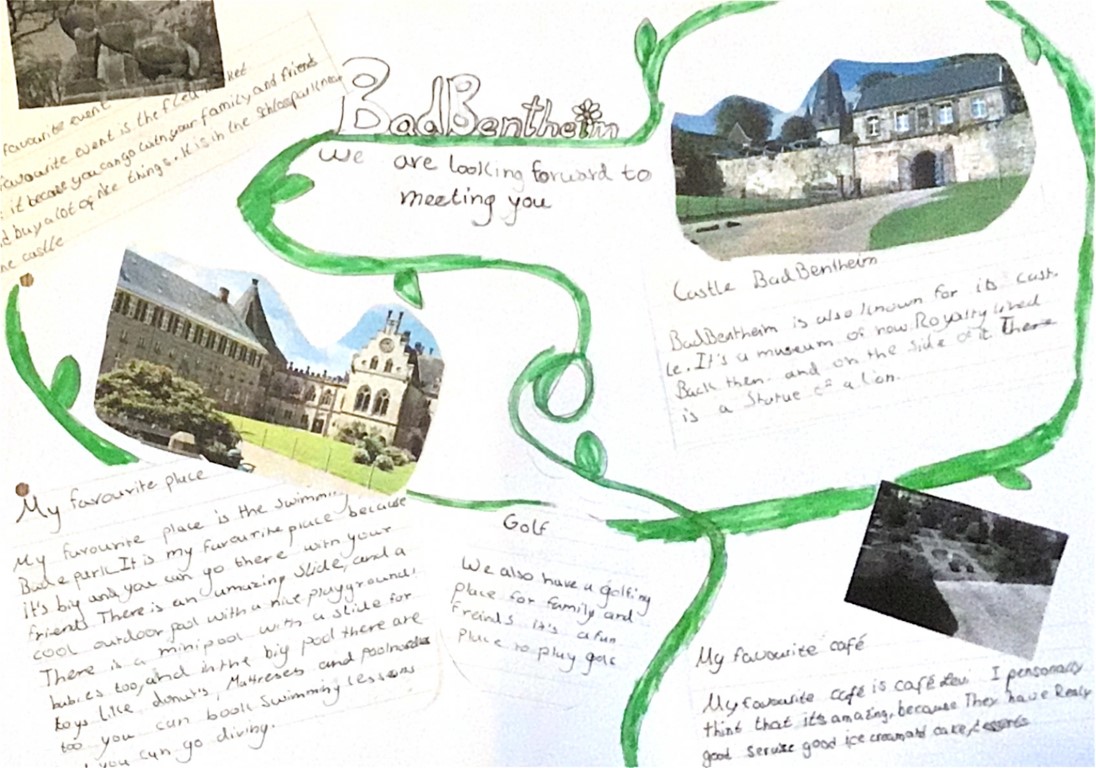 BadBentheim
We are looking forward to
meeting you
favourite event
favourite event is the
it because you can go with your family and friends
buy a lot of nice things. It is in the Schlosspark near
the castle
Castle BadBentheim
BadBentheim is also known for its cast-
le. It's a museum of how Royalty lived
Back then. and on the side of it. There
is a Statue of a Lion.
My favourite place
My favourite place is the swimming
Badepark. It is my favourite place because
it's big and you can go there with your
friends. There is an amazing slide, and a
cool outdoor pool with a nice playground.
There is a minipool with a slide for
babies too, and in the big pool there are
toys like, donuts, Mattreses and poolnoodles
too you can book swimming lessons
you can go diving.
Golf
We also have a golfing
place for family and
freinds it's a fun
place to play golf
My favourite café
My favourite café is café I personally
think that it's amazing, because They have Realy
good servize good ice cream and cake, desserts